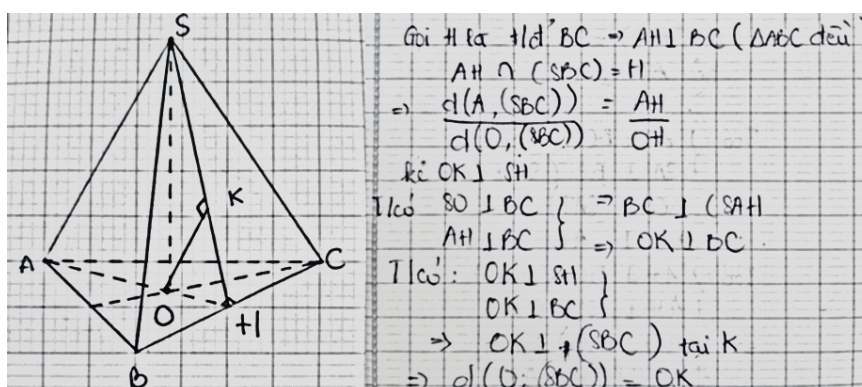 S
K
A
C
O
H
B
Gọi H là tđ BC ⇒ AH ⊥ BC (ΔABC đều
AH ∩ (SBC) = H
⇒ d(A, (SBC)) / d(O, (SBC)) = AH / OH
kẻ OK ⊥ SH
T/có SO ⊥ BC } ⇒ BC ⊥ (SAH
AH ⊥ BC } ⇒ OK ⊥ BC
T/có: OK ⊥ SH }
OK ⊥ BC }
⇒ OK ⊥ (SBC) tại K
⇒ d(O; (SBC)) = OK